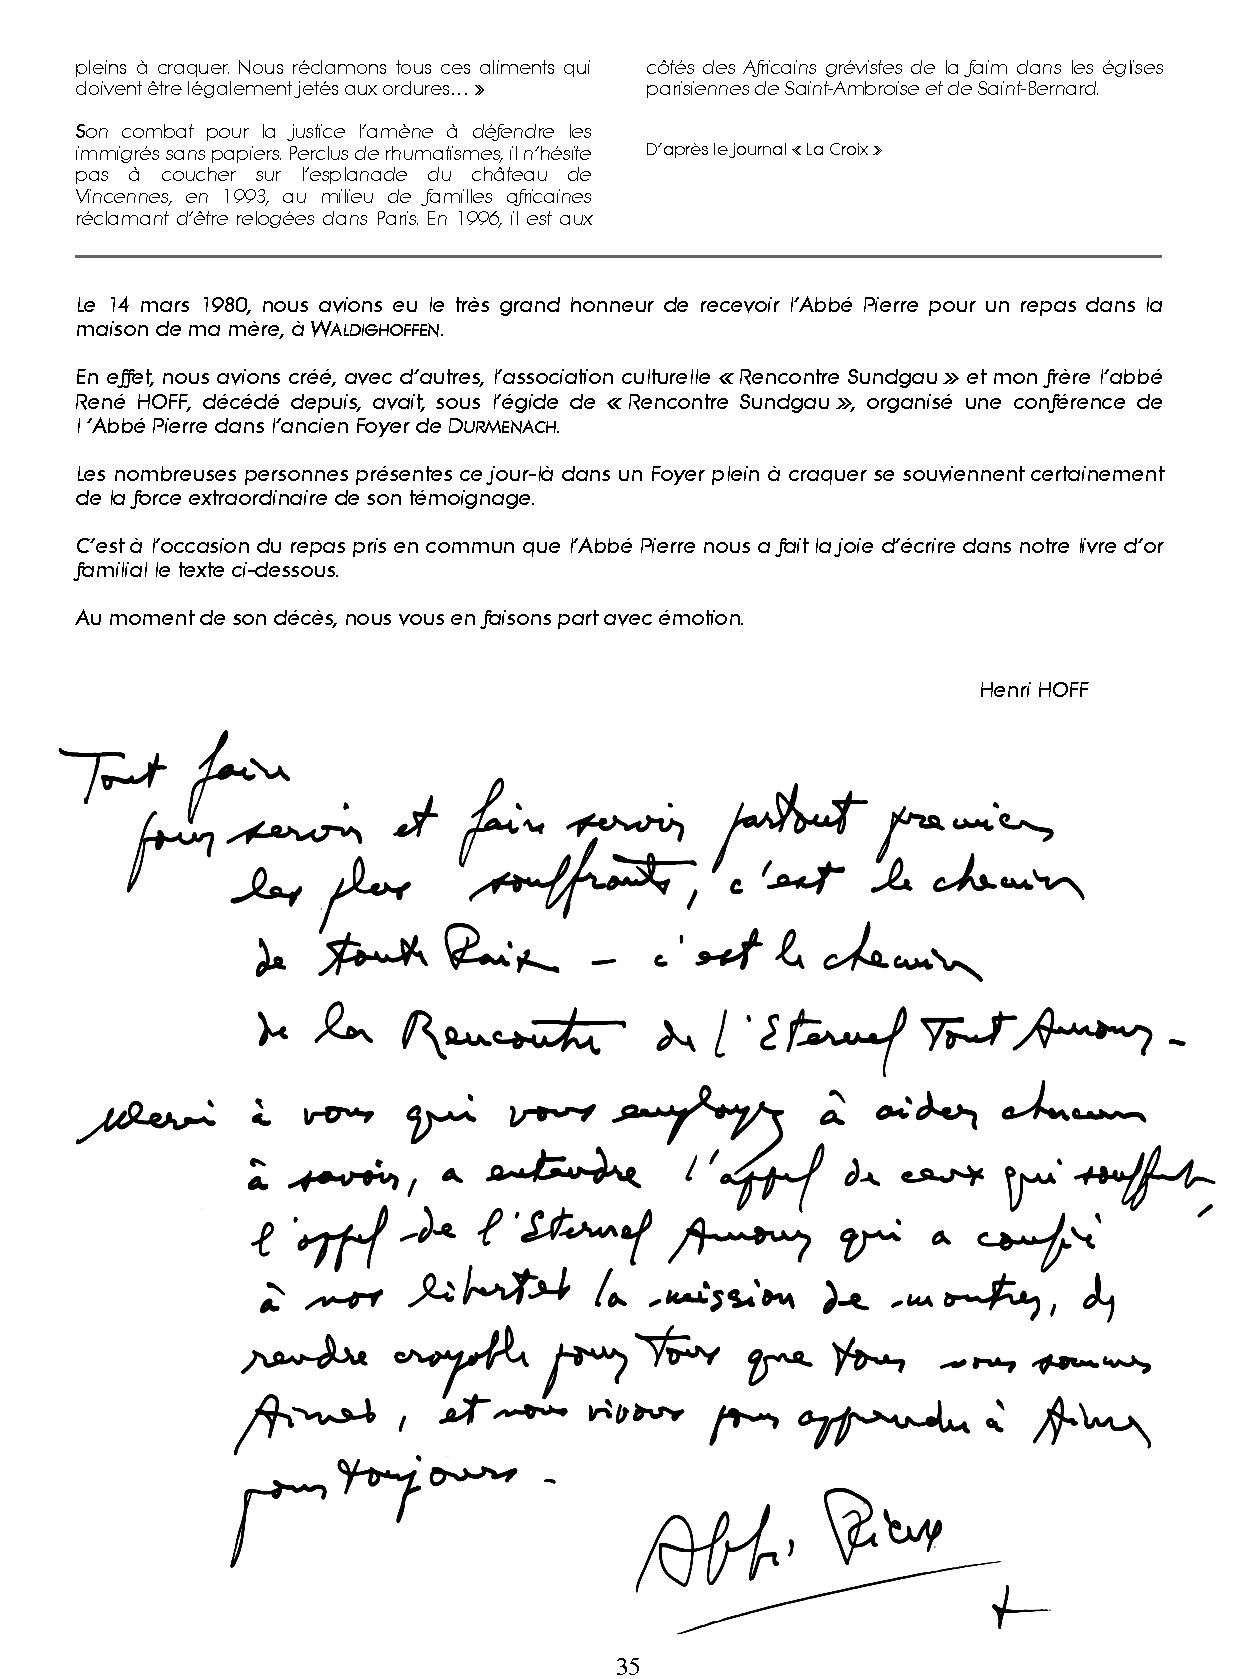 pleins à craquer. Nous réclamons tous ces aliments qui
doivent être légalement jetés aux ordures… »
Son combat pour la justice l'amène à défendre les
immigrés sans papiers. Perclus de rhumatismes, il n'hésite
pas à coucher sur l'esplanade du château de
Vincennes, en 1993, au milieu de familles africaines
réclamant d'être relogées dans Paris. En 1996, il est aux
côtés des Africains grévistes de la faim dans les églises
parisiennes de Saint-Ambroise et de Saint-Bernard.
D'après le journal « La Croix »
Le 14 mars 1980, nous avions eu le très grand honneur de recevoir l'Abbé Pierre pour un repas dans la
maison de ma mère, à WALDIGHOFFEN.
En effet, nous avions créé, avec d'autres, l'association culturelle « Rencontre Sundgau » et mon frère l'abbé
René HOFF, décédé depuis, avait, sous l'égide de « Rencontre Sundgau », organisé une conférence de
l 'Abbé Pierre dans l'ancien Foyer de DURMENACH.
Les nombreuses personnes présentes ce jour-là dans un Foyer plein à craquer se souviennent certainement
de la force extraordinaire de son témoignage.
C'est à l'occasion du repas pris en commun que l'Abbé Pierre nous a fait la joie d'écrire dans notre livre d'or
familial le texte ci-dessous.
Au moment de son décès, nous vous en faisons part avec émotion.
Henri HOFF
Tout faire
pour servir et faire servir partout premiers
les plus souffrants, c'est le chemin
de toute Paix – c'est le chemin
de la Rencontre de l'Eternel Tout Amour –
Merci à vous qui vous employez à aider chacun
à savoir, a entendre l'appel de ceux qui souffrent,
l'appel de l'Eternel Amour qui a confié
à nos libertés la mission de montrer, de
rendre croyable pour Tous que tous nous sommes
Aimés, et nous vivons pour apprendre à Aimer
pour toujours –
Abbé Pierre
35